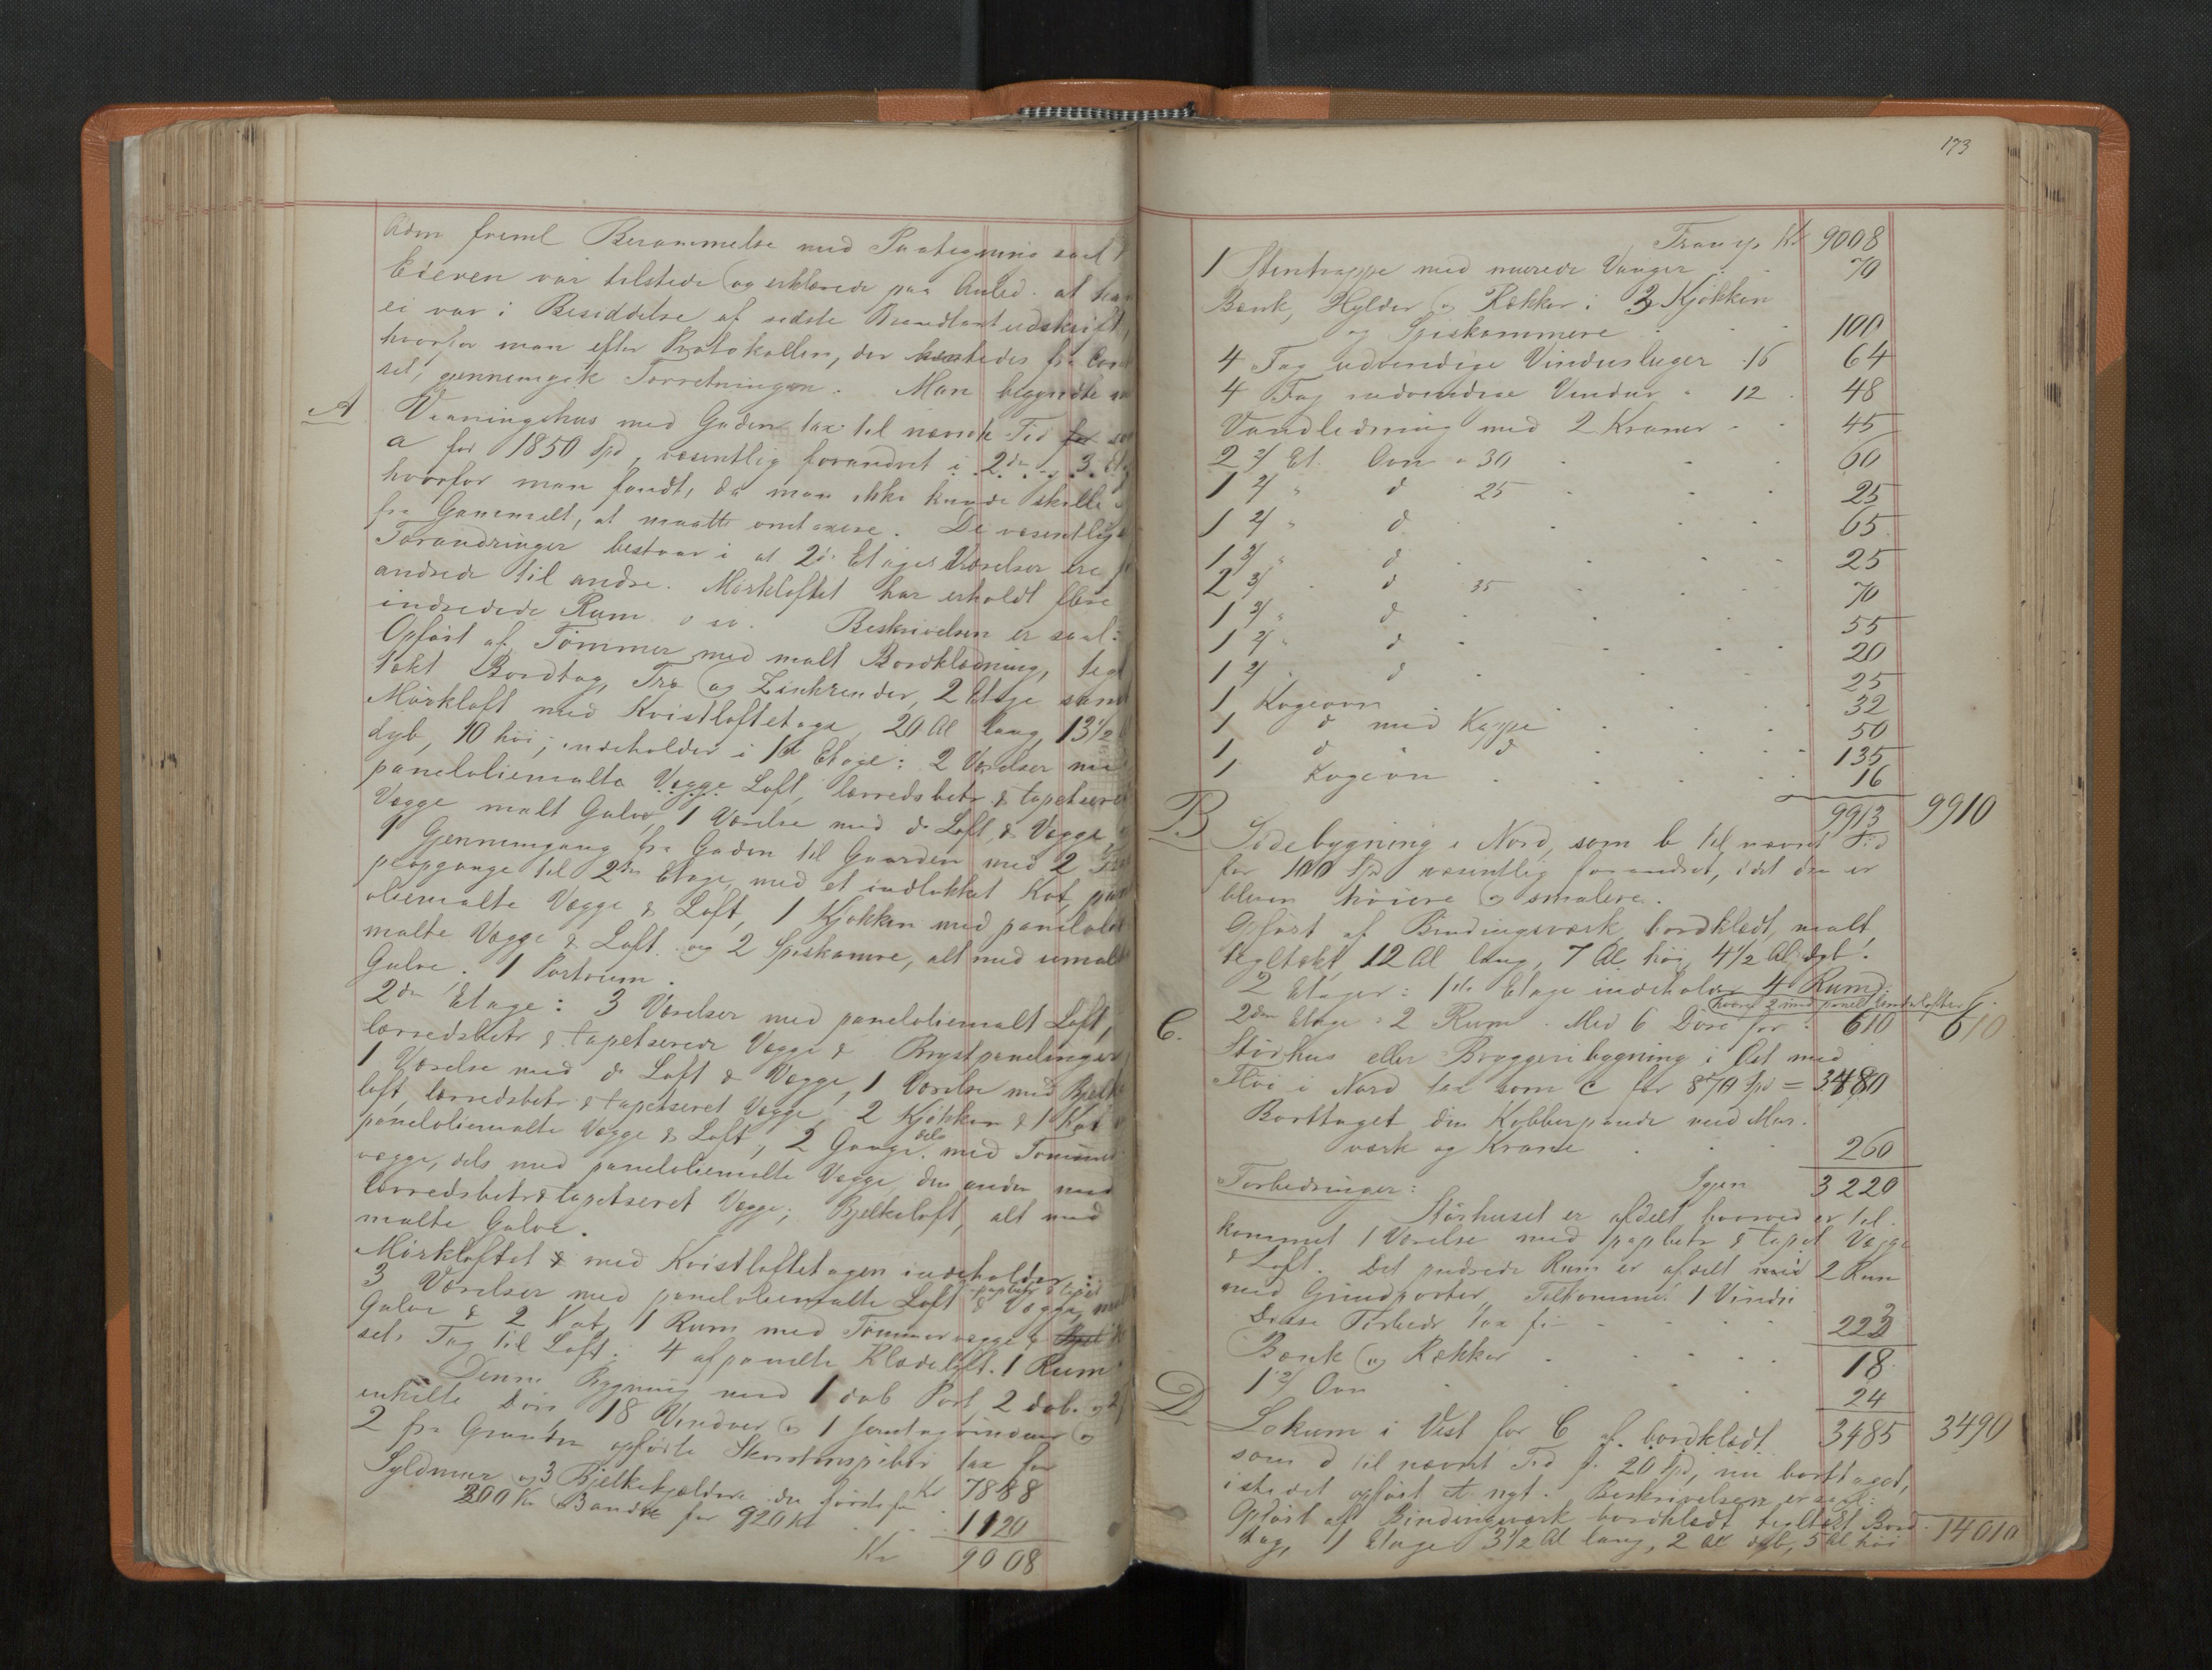 Adm freml Berammelse med Paategning samt
Eieren var tilstede og erklærede paa Anled. at han
ei var i Besiddelse af sidste Brandtaxtudskrift,
hvorfor man efter Protokollen, der hentedes fra
set, gjennemgik Forretningen. Man begyndte
A Vaaningshus mod Gaden tax til nævnte Tid for
a for 1850 Spd, væsentlig forandret i 2den og 3.
hvorfor man fandt, da man ikke kunde skille
fra Gammelt, at maatte omtaxere. De væsentlige
Forandringer bestaar i at 2d Etages Værelser ere
andrede til andre. Mørkloftet har erholdt flere
indredede Rum o sv. Beskrivelsen er saal:
Opført af Tømmer med malt Bordklædning, tegl
tækt Bordtag, Træ og Zinkrender, 2 Etage samt
Mørkloft med Kvistloftetage, 20 Al lang, 13 1/2
dyb, 10 høi; indeholder i 1ste Etage: 2 Værelser med
paneloliemalte Vægge Loft, lærredsbetr & tapetserede
Vægge malt Gulve, 1 Værelse med do Loft & Vægge
1 Gjennemgang fra Gaden til Gaarden med 2
peopgange til 2den Etage, med et indlukket Kot,
oliemalte Vægge & Loft, 1 Kjøkken med panelolie
malte Vægge & Loft og 2 Spiskamre, alt med umalte
Gulve. 1 Portrum.
2den Etage: 3 Værelser med paneloliemalt Loft,
lærredsbetr & tapetserede Vægge & Brystpanelinger
1 Værelse med do Loft & Vægge, 1 Værelse med Bjelke
loft, lærredsbetr & tapetseret Vægge, 2 Kjøkken & 1 Kot
paneloliemalte Vægge & Loft, 2 Gange dels med Tømmer
vægge, dels med paneloliemalte Vægge, den anden med
lærredsbetr & tapetseret Vægge; Bjelkeloft, alt med
malte Gulve.
Mørkloftet & med Kvistloftetagen indeholder:
3 Værelser med paneloliemalte Loft papbetr & tapet & Vægge,
Gulve & 2 Kot, 1 Rum med Tømmervægge &
sel. Tag til Loft. 4 afpanelte Klædeloft. 1 Rum
Denne Bygning med 1 dob Port, 2 dob. og
enkelte Døre 18 Vinduer og 1 Jerntagvindue og
2 fra Grunden opførte Skorstenspiber tax for
Kr 7888
Syldmur og 3 Bjelkekjældere den første for
200 Kr 3 andre for 920 Kr . . 1120
Kr 9008
173
Transp Kr 9008
1 Stentrappe med murede Vanger . 70
Bænk, Hylder og Rækker i 3 Kjøkken
og Spiskammere . . 100
4 Fag udvendige Vinduesluger . 16 64
4 Fag indvendige Vinduer . 12 . 48
Vandledning med 2 Kraner . . 45
2 2/ Et. Ovn . 30 . . . 60
1 2/ " d 25 . . . 25
1 2/ " d . . . . 65
1 3/ " d . . . . 25
2 3/ . d 35 . . . 70
1 3/ " d . . . . 55
1 2/ " d . . . . 20
1 2/ . d . . . . 25
1 Kogeovn . . . . 32
1 d med Kappe . . . 50
1 d " d . . . 135
1 Kogeovn . . . . 16
9913 9910
B Sidebygning i Nord, som b til nævnt Tid
for 100 Spd væsentlig forandret, idet den er
bleven høiere og smalere.
Opført af Bindingsværk, bordklædt, malt,
tegltækt, 12 Al lang, 7 Al høi, 4 1/2 Al dyb.
2 Etager: 1ste Etage indeholder 4 Rum,
2den Etage: 2 Rum. Med 6 Døre for . 610 610
C. Størhus eller Bryggeribygning i Øst med
Fløi i Nord tax som c for 870 Spd = 3480
Borttaget den Kobberpande med Mur-
værk og Krane . . 260
Igjen 3220
Forbedringer:
Størhuset er afdelt hvorved er til-
kommet 1 Værelse med papbetr & tapet Vægge
& Loft. Det indrede Rum er afdelt med 2 Rum
med Grindporter, Tilkommet 1 Vindu
Disse Forbedr tax for . . . . 223
Bænk og Rækker . . . . 18
1 2/ Ovn . . . . 24
3485 3490
D Lokum i Vest for C af bordklædt
som d til nævnt Tid for 20 Spd, nu borttaget,
istedet opført et nyt. Beskrivelsen er saal:
Opført af Bindingsværk bordklædt tegltækt Bord-
tag, 1 Etage 3 1/2 Al lang, 2 Al dyb, 5 Al høi 14010